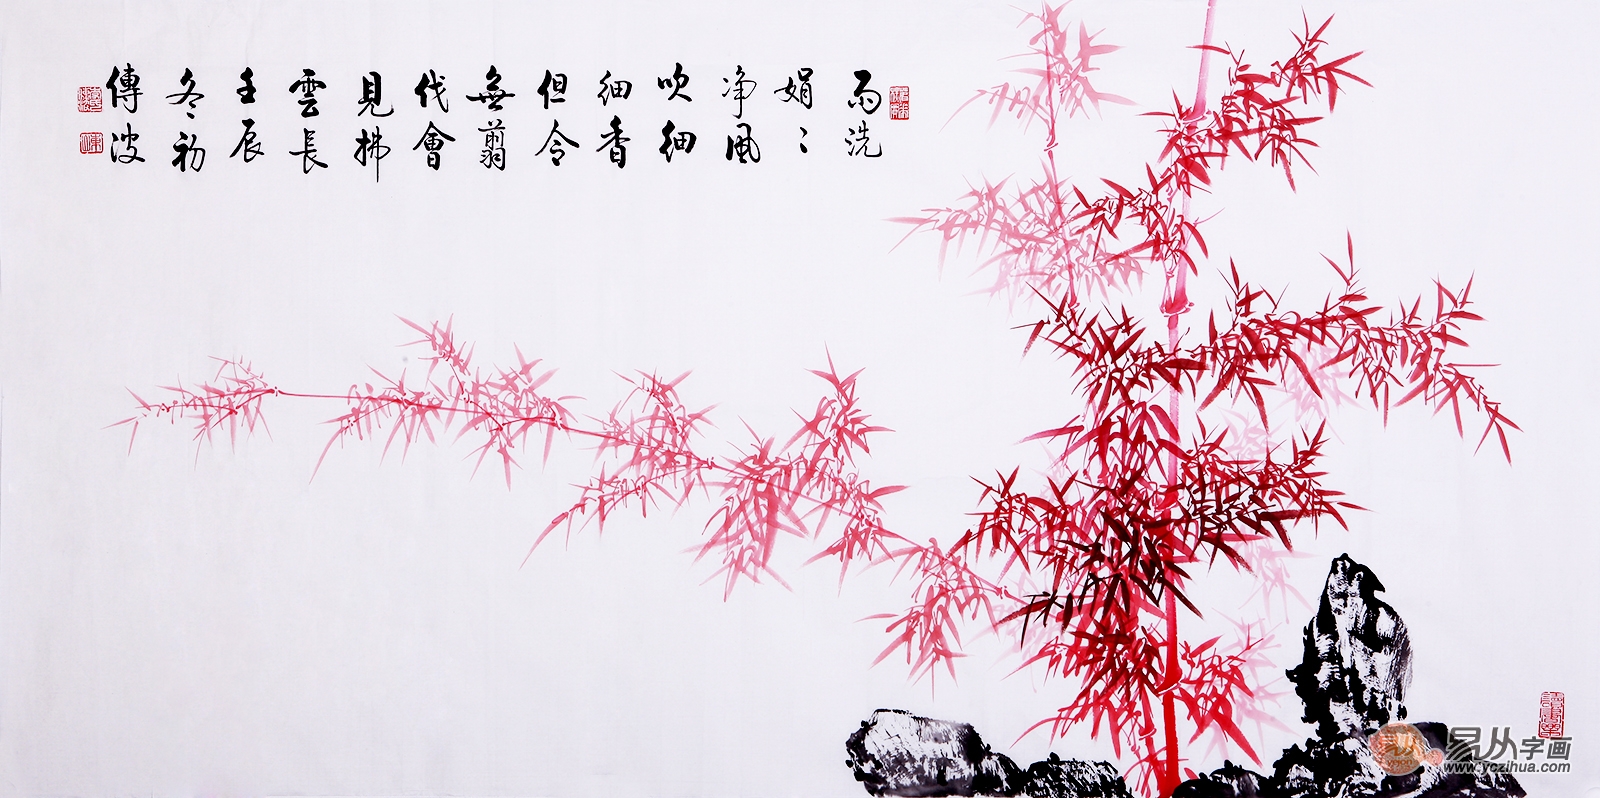 雨洗
娟〻
净風
吹細
細香
但令
無翦
伐會
見拂
雲長
壬辰
冬初
傳波
易从字画
www.yczihua.com